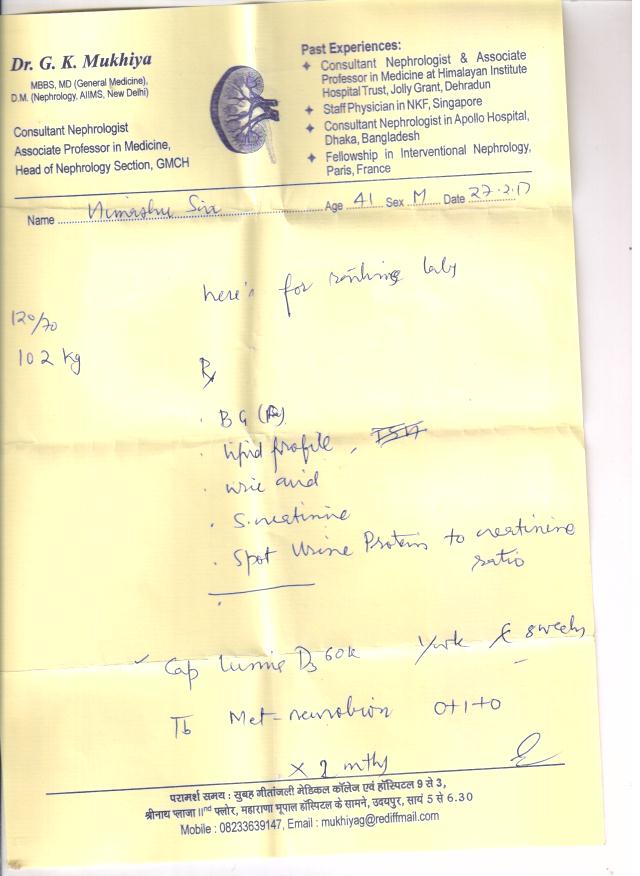 Dr. G. K. Mukhiya
MBBS, MD (General Medicine),
D.M. (Nephrology, AIIMS, New Delhi)
Consultant Nephrologist
Associate Professor in Medicine,
Head of Nephrology Section, GMCH
Past Experiences:
Consultant Nephrologist & Associate
Professor in Medicine at Himalayan Institute
Hospital Trust, Jolly Grant, Dehradun
Staff Physician in NKF, Singapore
Consultant Nephrologist in Apollo Hospital,
Dhaka, Bangladesh
Fellowship in Interventional Nephrology,
Paris, France
Name Age 41 Sex M Date 27.2.17
here's for labs
120/70
102 kg
Rx
BG
lipid profile,
uric acid
S. creatinine
Spot Urine Protein to creatinine
ratio
Cap D3 60k 8 weeks
Tb Met-neurobion 0+1+0
x 2 mths
परामर्श समय : सुबह गीतांजली मेडिकल कॉलेज एवं हॉस्पिटल 9 से 3,
श्रीनाथ प्लाजा IInd फ्लोर, महाराणा भूपाल हॉस्पिटल के सामने, उदयपुर, सायं 5 से 6.30
Mobile : 08233639147, Email : mukhiyag@rediffmail.com